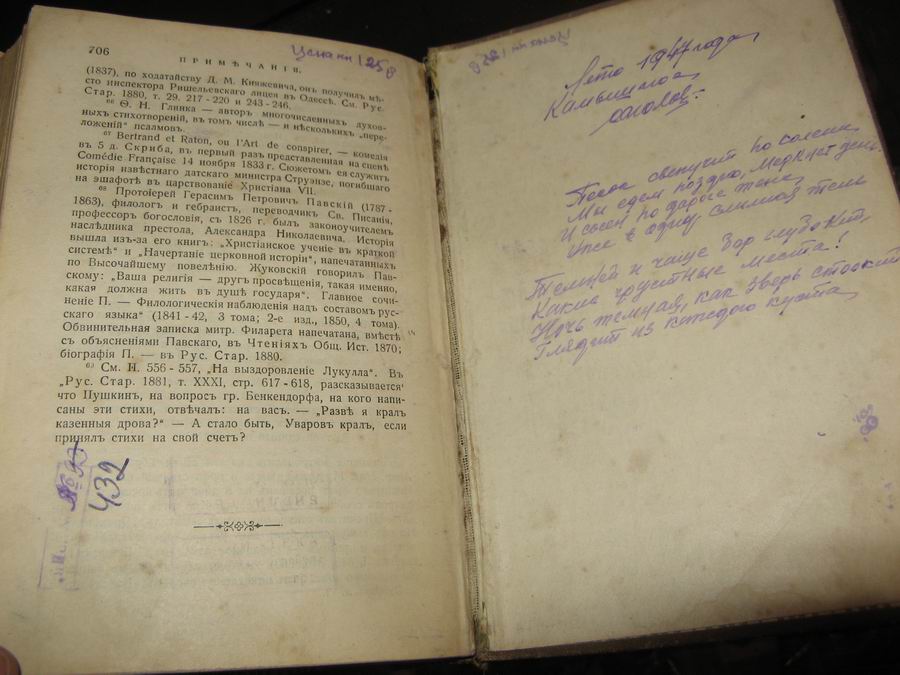 706
ПРИМѢЧАНІЯ.
(1837), по ходатайству Д. М. Княжевича, онъ получилъ мѣ-
сто инспектора Ришельевскаго лицея въ Одессѣ. См. Рус.
Стар. 1880, т. 29, 217-220 и 243-246.
Ѳ. Н. Глинка — авторъ многочисленныхъ духов-
ныхъ стихотвореній, въ томъ числѣ — и нѣсколькихъ „пере-
ложеній" псалмовъ.
⁶⁷ Bertrand et Raton, ou l'Art de conspirer, — комедія
въ 5 д. Скриба, въ первый разъ представленная на сценѣ
Comédie Française 14 ноября 1833 г. Сюжетомъ ея служитъ
исторія извѣстнаго датскаго министра Струэнзе, погибшаго
на эшафотѣ въ царствованіе Христіана VII.
⁶⁸ Протоіерей Герасимъ Петровичъ Павскій (1787-
1863), филологъ и гебраистъ, переводчикъ Св. Писанія,
профессоръ богословія, съ 1826 г. былъ законоучителемъ
наслѣдника престола, Александра Николаевича. Исторія
вышла изъ-за его книгъ: „Христіанское ученіе въ краткой
системѣ" и „Начертаніе церковной исторіи", напечатанныхъ
по Высочайшему повелѣнію. Жуковскій говорилъ Пав-
скому: „Ваша религія — другъ просвѣщенія, такая именно,
какая должна жить въ душѣ государя". Главное сочи-
неніе П. — Филологическія наблюденія надъ составомъ рус-
скаго языка" (1841-42, 3 тома; 2-е изд., 1850, 4 тома).
Обвинительная записка митр. Филарета напечатана, вмѣстѣ
съ объясненіями Павскаго, въ Чтеніяхъ Общ. Ист. 1870;
біографія П. — въ Рус. Стар. 1880.
См. Н. 556-557, „На выздоровленіе Лукулла". Въ
„Рус. Стар. 1881, т. XXXI, стр. 617-618, разсказывается
что Пушкинъ, на вопросъ гр. Бенкендорфа, на кого напи-
саны эти стихи, отвѣчалъ: на васъ. — „Развѣ я кралъ
казенныя дрова?" — А стало быть, Уваровъ кралъ, если
принялъ стихи на свой счетъ?
432
Лето 1947 года
Мы едем поздно, меркнет день,
И сосен по дороге тени
Уже в одну слились тень
Темней и чаще бор глубокий,
Какие грустные места!
Ночь темная, как зверь стоокий
Глядит из каждого куста